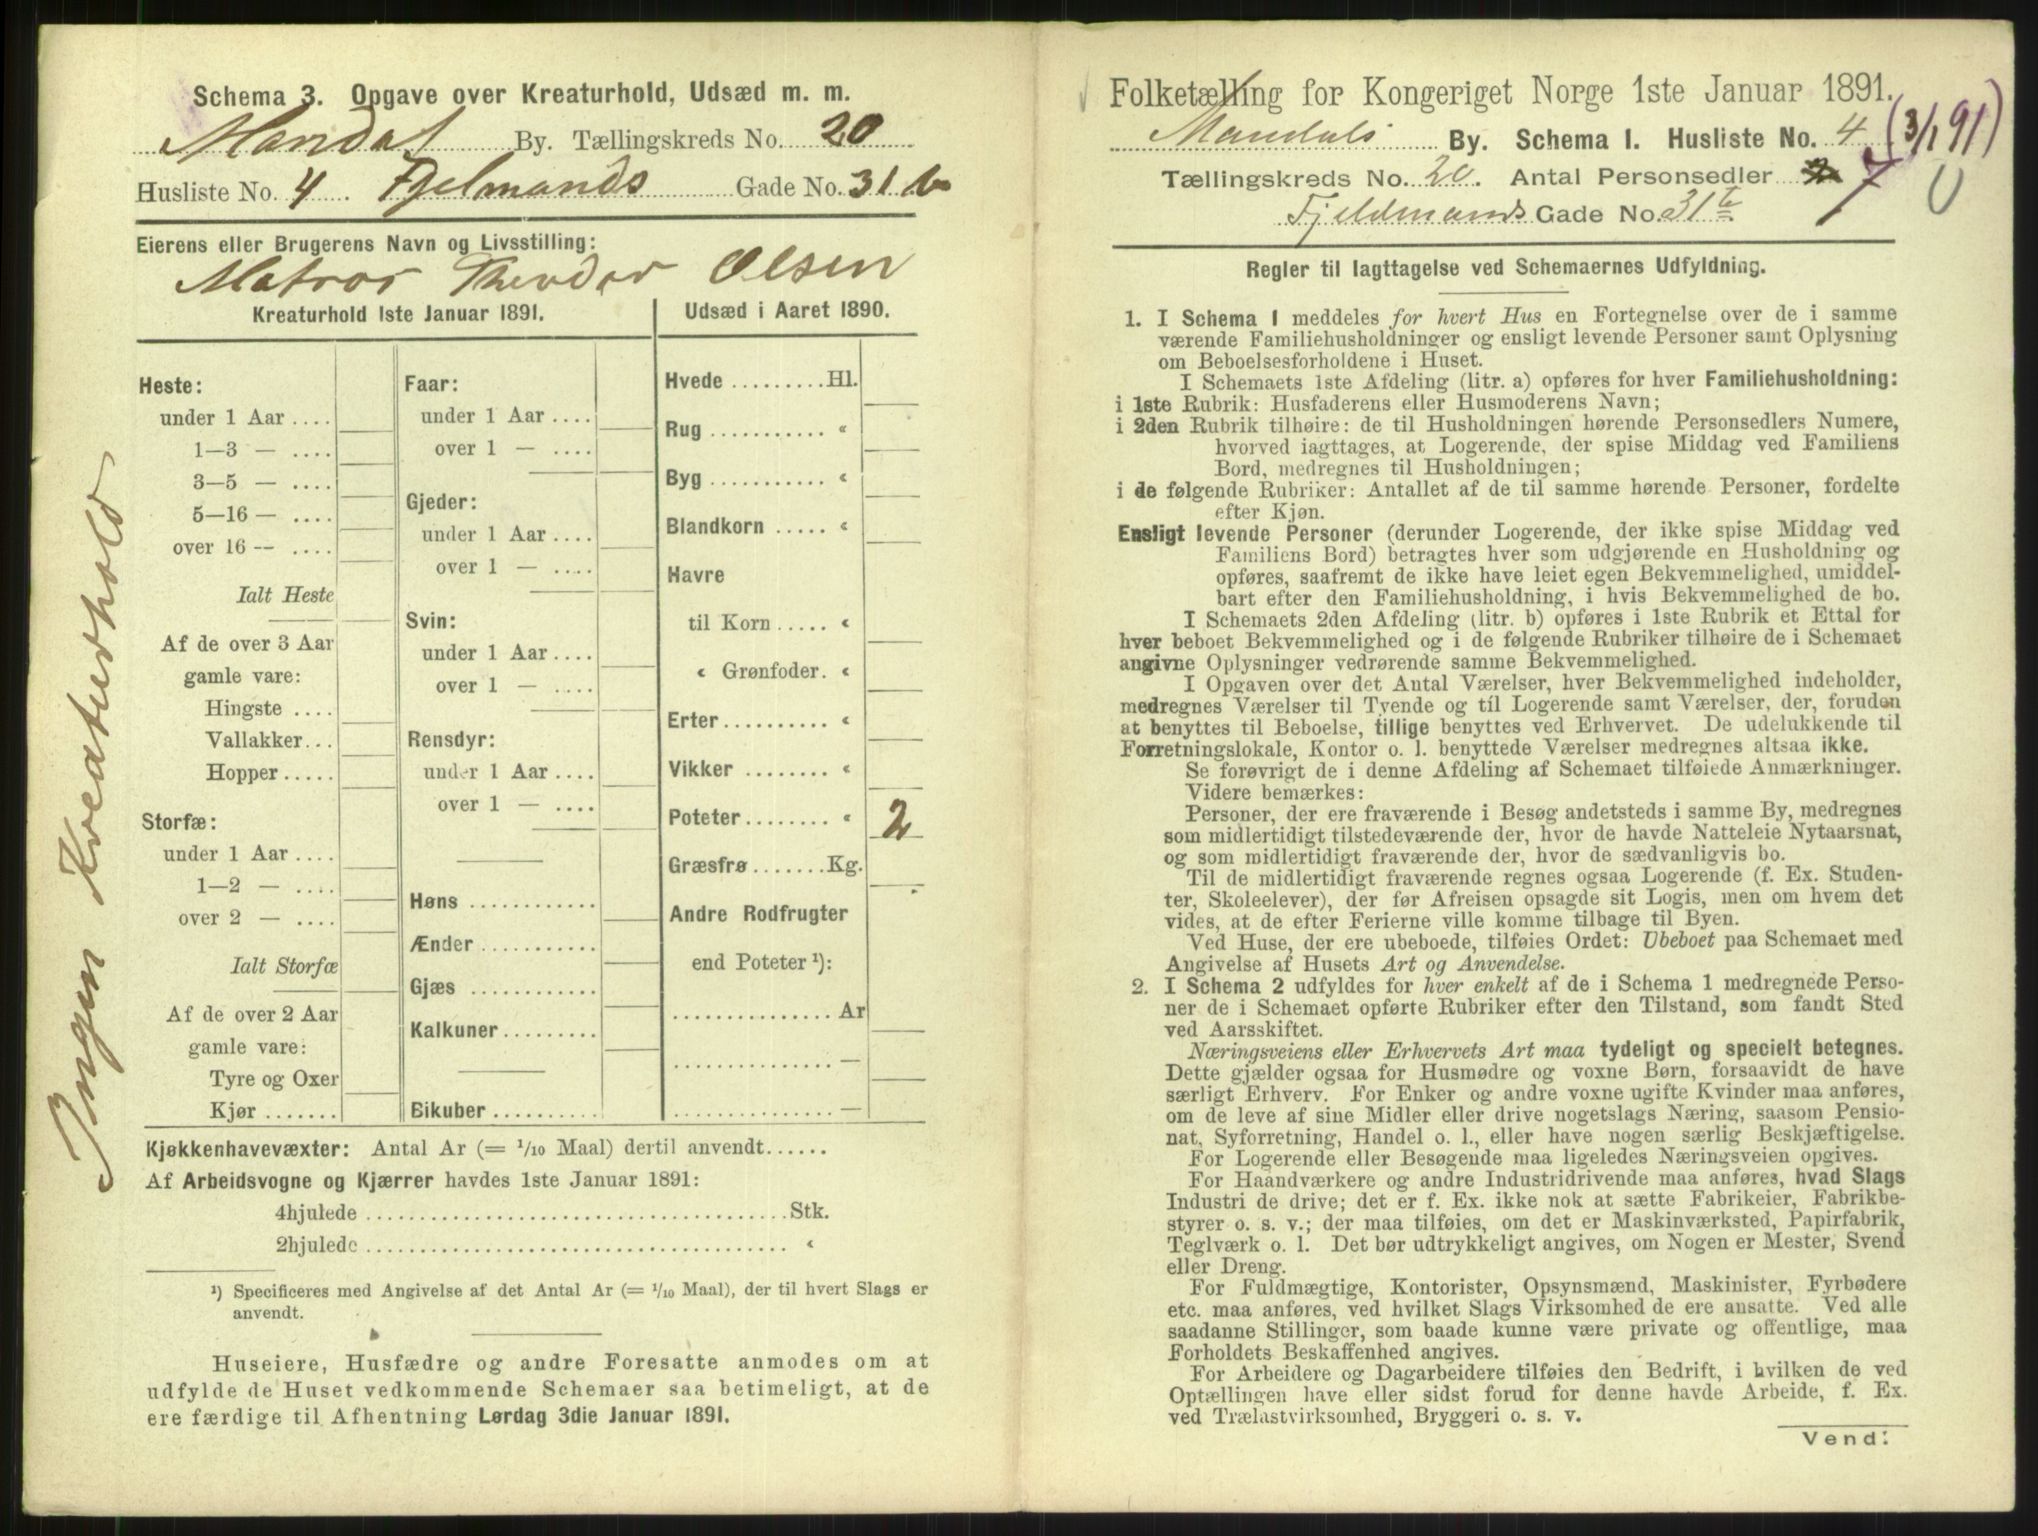 Schema 3. Opgave over Kreaturhold, Udsæd m. m.
Mandal By. Tællingskreds No. 20
Husliste No. 4 Fjelmands Gade No. 31 b
Eierens eller Brugerens Navn og Livsstilling:
Matros Theodor Olsen
Kreaturhold 1ste Januar 1891.
Heste:
under 1 Aar ....
1—3 — ....
3—5 — ....
5—16 — ....
over 16 — ....
Ialt Heste
Af de over 3 Aar
gamle vare:
Hingste ....
Vallakker...
Hopper.....
Storfæ:
under 1 Aar ....
1—2 — ....
over 2 — ....
Ialt Storfæ
Af de over 2 Aar
gamle vare:
Tyre og Oxer
Kjør.......
Faar:
under 1 Aar ....
over 1 — ....
Gjeder:
under 1 Aar ....
over 1 — ....
Svin:
under 1 Aar ....
over 1 — ....
Rensdyr:
under 1 Aar ....
over 1 — ....
Høns ............
Ænder ...........
Gjæs ............
Kalkuner.........
Bikuber ..........
Udsæd i Aaret 1890.
Hvede .........Hl.
Rug ........... «
Byg ........... «
Blandkorn ..... «
Havre
til Korn ..... «
« Grønfoder. «
Erter ......... «
Vikker ........ «
Poteter........ « 2
Græsfrø.......Kg.
Andre Rodfrugter
end Poteter ¹):
............... Ar
............... —
............... —
Ingen Kreaturhold
Kjøkkenhavevæxter: Antal Ar (= 1/10 Maal) dertil anvendt......
Af Arbeidsvogne og Kjærrer havdes 1ste Januar 1891:
4hjulede ........................................Stk.
2hjulede ........................................ «
¹) Specificeres med Angivelse af det Antal Ar (= 1/10 Maal), der til hvert Slags er
anvendt.
Huseiere, Husfædre og andre Foresatte anmodes om at
udfylde de Huset vedkommende Schemaer saa betimeligt, at de
ere færdige til Afhentning Lørdag 3die Januar 1891.
Folketælling for Kongeriget Norge 1ste Januar 1891.
Mandals By. Schema I. Husliste No. 4 (3/1 91)
Tællingskreds No. 20. Antal Personsedler 7
Fjeldmands Gade No. 31 b
Regler til Iagttagelse ved Schemaernes Udfyldning.
1. I Schema 1 meddeles for hvert Hus en Fortegnelse over de i samme
værende Familiehusholdninger og ensligt levende Personer samt Oplysning
om Beboelsesforholdene i Huset.
I Schemaets 1ste Afdeling (litr. a) opføres for hver Familiehusholdning:
i 1ste Rubrik: Husfaderens eller Husmoderens Navn;
i 2den Rubrik tilhøire: de til Husholdningen hørende Personsedlers Numere,
hvorved iagttages, at Logerende, der spise Middag ved Familiens
Bord, medregnes til Husholdningen;
i de følgende Rubriker: Antallet af de til samme hørende Personer, fordelte
efter Kjøn.
Ensligt levende Personer (derunder Logerende, der ikke spise Middag ved
Familiens Bord) betragtes hver som udgjørende en Husholdning og
opføres, saafremt de ikke have leiet egen Bekvemmelighed, umiddel-
bart efter den Familiehusholdning, i hvis Bekvemmelighed de bo.
I Schemaets 2den Afdeling (litr. b) opføres i 1ste Rubrik et Ettal for
hver beboet Bekvemmelighed og i de følgende Rubriker tilhøire de i Schemaet
angivne Oplysninger vedrørende samme Bekvemmelighed.
I Opgaven over det Antal Værelser, hver Bekvemmelighed indeholder,
medregnes Værelser til Tyende og til Logerende samt Værelser, der, foruden
at benyttes til Beboelse, tillige benyttes ved Erhvervet. De udelukkende til
Forretningslokale, Kontor o. l. benyttede Værelser medregnes altsaa ikke.
Se forøvrigt de i denne Afdeling af Schemaet tilføiede Anmærkninger.
Videre bemærkes:
Personer, der ere fraværende i Besøg andetsteds i samme By, medregnes
som midlertidigt tilstedeværende der, hvor de havde Natteleie Nytaarsnat,
og som midlertidigt fraværende der, hvor de sædvanligvis bo.
Til de midlertidigt fraværende regnes ogsaa Logerende (f. Ex. Studen-
ter, Skoleelever), der før Afreisen opsagde sit Logis, men om hvem det
vides, at de efter Ferierne ville komme tilbage til Byen.
Ved Huse, der ere ubeboede, tilføies Ordet: Ubeboet paa Schemaet med
Angivelse af Husets Art og Anvendelse.
2. I Schema 2 udfyldes for hver enkelt af de i Schema 1 medregnede Perso-
ner de i Schemaet opførte Rubriker efter den Tilstand, som fandt Sted
ved Aarsskiftet.
Næringsveiens eller Erhvervets Art maa tydeligt og specielt betegnes.
Dette gjælder ogsaa for Husmødre og voxne Børn, forsaavidt de have
særligt Erhverv. For Enker og andre voxne ugifte Kvinder maa anføres,
om de leve af sine Midler eller drive nogetslags Næring, saasom Pensio-
nat, Syforretning, Handel o. l., eller have nogen særlig Beskjæftigelse.
For Logerende eller Besøgende maa ligeledes Næringsveien opgives.
For Haandværkere og andre Industridrivende maa anføres, hvad Slags
Industri de drive; det er f. Ex. ikke nok at sætte Fabrikeier, Fabrikbe-
styrer o. s. v.; der maa tilføies, om det er Maskinværksted, Papirfabrik,
Teglværk o. l. Det bør udtrykkeligt angives, om Nogen er Mester, Svend
eller Dreng.
For Fuldmægtige, Kontorister, Opsynsmænd, Maskinister, Fyrbødere
etc. maa anføres, ved hvilket Slags Virksomhed de ere ansatte. Ved alle
saadanne Stillinger, som baade kunne være private og offentlige, maa
Forholdets Beskaffenhed angives.
For Arbeidere og Dagarbeidere tilføies den Bedrift, i hvilken de ved
Optællingen have eller sidst forud for denne havde Arbeide, f. Ex.
ved Trælastvirksomhed, Bryggeri o. s. v.
Vend.